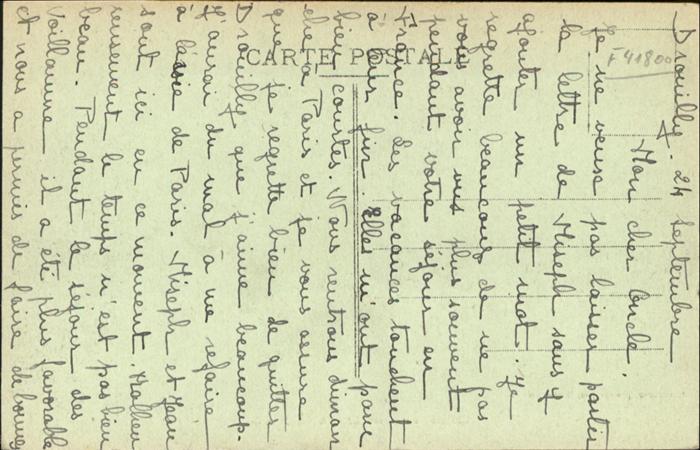 CARTE POSTALE
F 41800
Drouilly. 24 septembre
Mon cher Oncle.
Je ne veux pas laisser partir
la lettre de Miseph sans y
ajouter un petit mot. Je
regrette beaucoup de ne pas
vous avoir vus plus souvent
pendant votre séjour en
France. Les vacances touchent
à leur fin Elles m'ont paru
bien courtes. Nous rentrons diman
che à Paris et je vous assure
que je regrette bien de quitter
Drouilly que j'aime beaucoup.
J'aurai du mal à me refaire
à la vie de Paris. Miseph et Jean
sont ici en ce moment. Malheu
reusement le temps n'est pas bien
beau. Pendant le séjour des
il a été plus favorable
et nous a permis de faire de bonnes